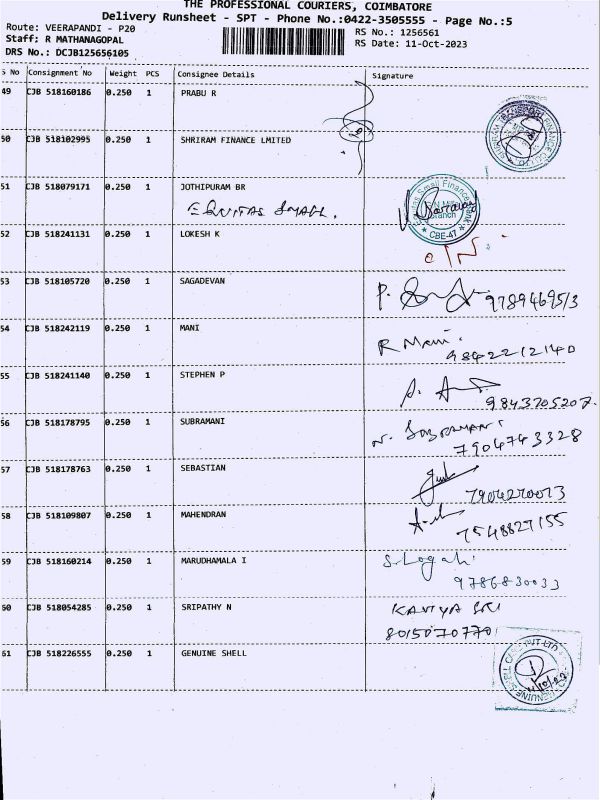 THE PROFESSIONAL COURIERS, COIMBATORE
Delivery Runsheet - SPT - Phone No.:0422-3505555 - Page No.:5
Route: VEERAPANDI - P20
Staff: R MATHANAGOPAL
DRS No.: DCJB125656105
RS No.: 1256561
RS Date: 11-Oct-2023
S No Consignment No Weight PCS Consignee Details Signature
49 CJB 518160186 0.250 1 PRABU R
50 CJB 518102995 0.250 1 SHRIRAM FINANCE LMITED
51 CJB 518079171 0.250 1 JOTHIPURAM BR
EQUITAS SMALL.
CBE-47
52 CJB 518241131 0.250 1 LOKESH K
53 CJB 518105720 0.250 1 SAGADEVAN
9789469513
54 CJB 518242119 0.250 1 MANI
R Mani
9842212140
55 CJB 518241140 0.250 1 STEPHEN P
9843705207.
56 CJB 518178795 0.250 1 SUBRAMANI
N. SUBRAMANI
7904743328
57 CJB 518178763 0.250 1 SEBASTIAN
7904270073
58 CJB 518109807 0.250 1 MAHENDRAN
7548827155
59 CJB 518160214 0.250 1 MARUDHAMALA I
9786830033
60 CJB 518054285 0.250 1 SRIPATHY N
KAVIYA SRI
8015070770
61 CJB 518226555 0.250 1 GENUINE SHELL